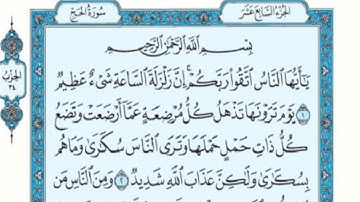 سُورَةُ الحَجِّ
الجُزْءُ السَّابِعَ عَشَرَ
بِسْمِ اللَّهِ الرَّحْمَٰنِ الرَّحِيمِ
يَٰٓأَيُّهَا ٱلنَّاسُ ٱتَّقُوا۟ رَبَّكُمْ ۚ إِنَّ زَلْزَلَةَ ٱلسَّاعَةِ شَىْءٌ عَظِيمٌ
١ يَوْمَ تَرَوْنَهَا تَذْهَلُ كُلُّ مُرْضِعَةٍ عَمَّآ أَرْضَعَتْ وَتَضَعُ
كُلُّ ذَاتِ حَمْلٍ حَمْلَهَا وَتَرَى ٱلنَّاسَ سُكَٰرَىٰ وَمَا هُم
بِسُكَٰرَىٰ وَلَٰكِنَّ عَذَابَ ٱللَّهِ شَدِيدٌ ٢ وَمِنَ ٱلنَّاسِ مَن
الحزب
٣٤